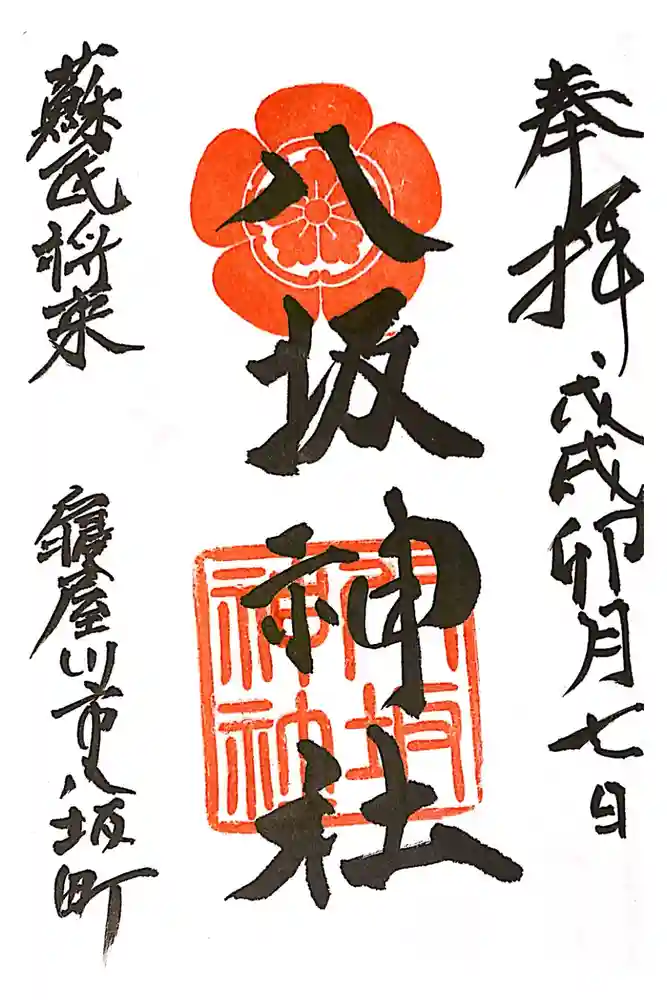 奉拝
戊戌卯月七日
八坂神社
蘇民将来
寝屋川市八坂町
八坂神社